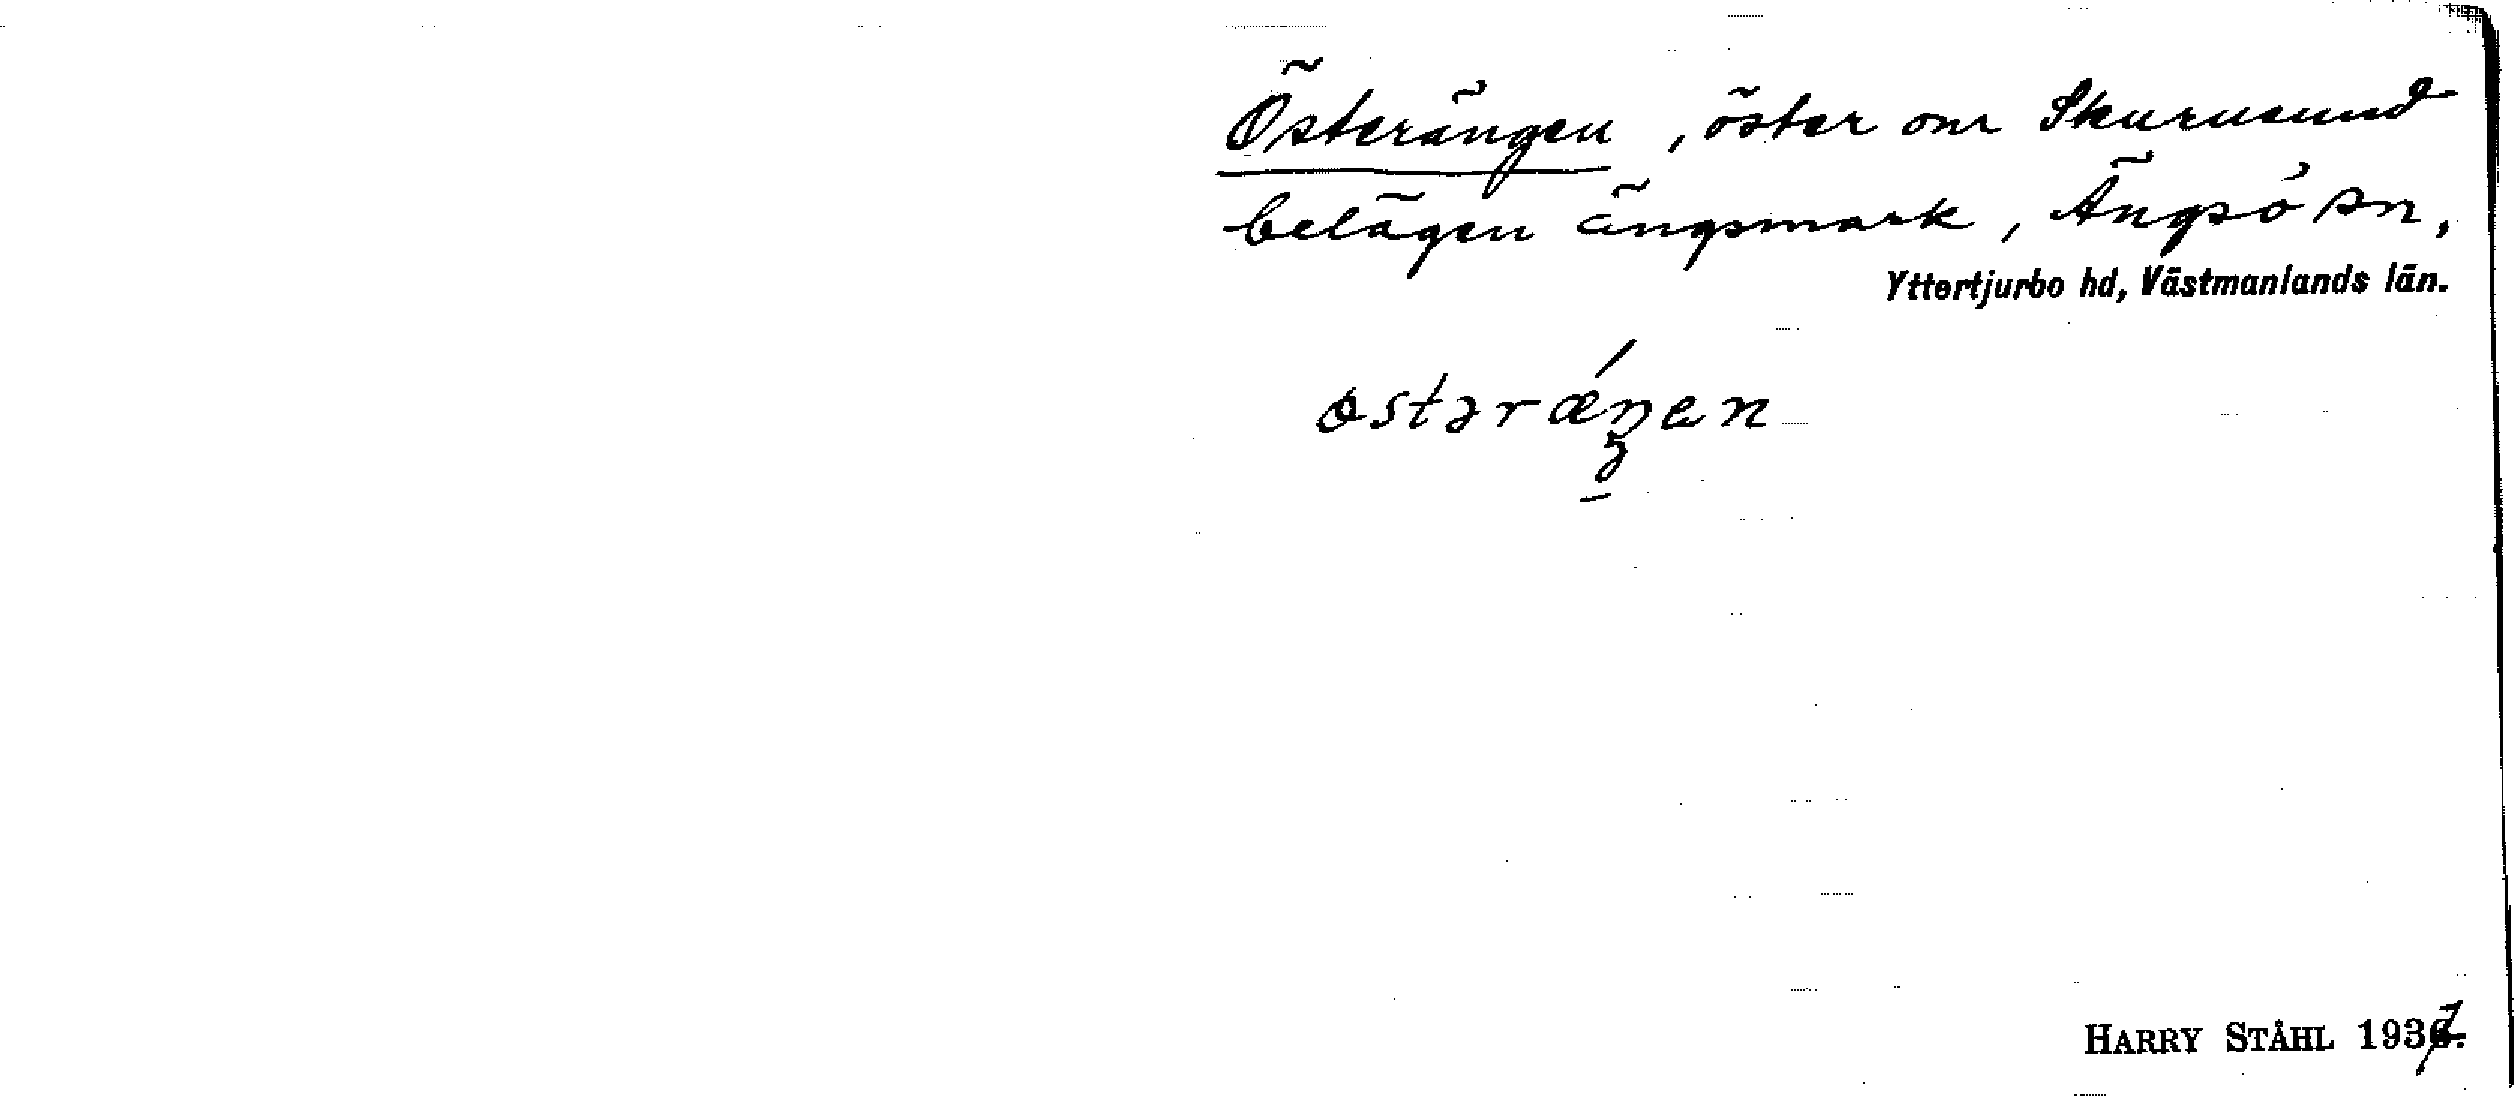 Österängen, öster om Skurusund
belägen ängsmark, Ängsö sn,
Yttertjurbo hd, Västmanlands län.
østərǽŋen
HARRY STÅHL 1937.